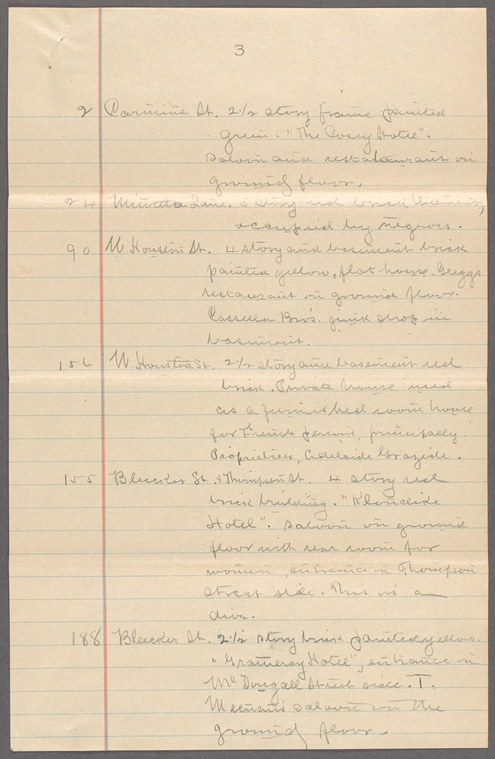 3
2 Carmine St. 2 1/2 story frame painted
green. "The Cosey Hotel".
Saloon and restaurant on
ground floor.
24 Minetta Lane. 5 story red brick tenement,
occupied by negroes.
90 W. Houston St. 4 story and basement brick
painted yellow, flat house. Gregg's
restaurant on ground floor.
Bros. junk shop in
basement.
156 W. Houston St. 2 1/2 story and basement red
brick. Private house used
as a furnished room house
for French persons, principally.
Proprietress, Adelaide
155 Bleecker St. & Thompson St. 4 story red
brick building. "Klondike
Hotel". Saloon on ground
floor with rear room for
women, entrance on Thompson
Street side. This is a
dive.
188 Bleecker St. 2 1/2 story brick painted yellow.
"Gramercy Hotel", entrance on
McDougall Street side. T.
saloon on the
ground floor.